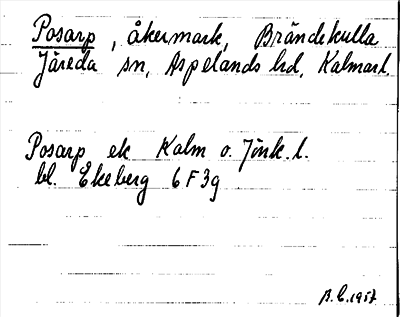 Posarp, åkermark, Brändekulla
Järeda sn, Aspelands hd, Kalmarl.
Posarp ek Kalm o. Jönk. l.
bl. Ekeberg 6 F 3g
B. E. 1957